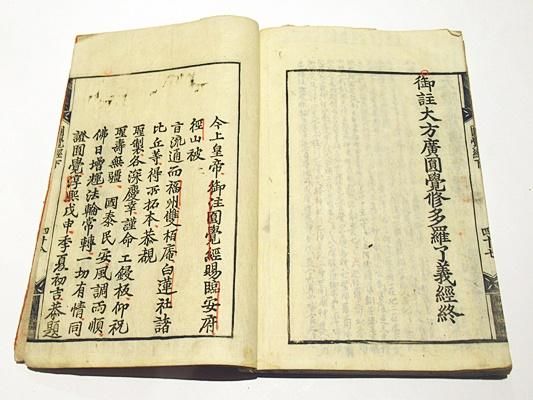 圓覺經下 四十七
御註大方廣圓覺修多羅了義經終
今上皇帝御注圓覺經賜臨安府
徑山被
旨流通而福州雙栢庵白蓮社諸
比丘等得所拓本恭覩
聖製各深慶幸謹命工鋟板仰祝
聖壽無疆 國泰民安風調雨順
佛日增輝法輪常轉一切有情同
證圓覺淳熙戊申季夏初吉恭題
圓覺經下 四十八